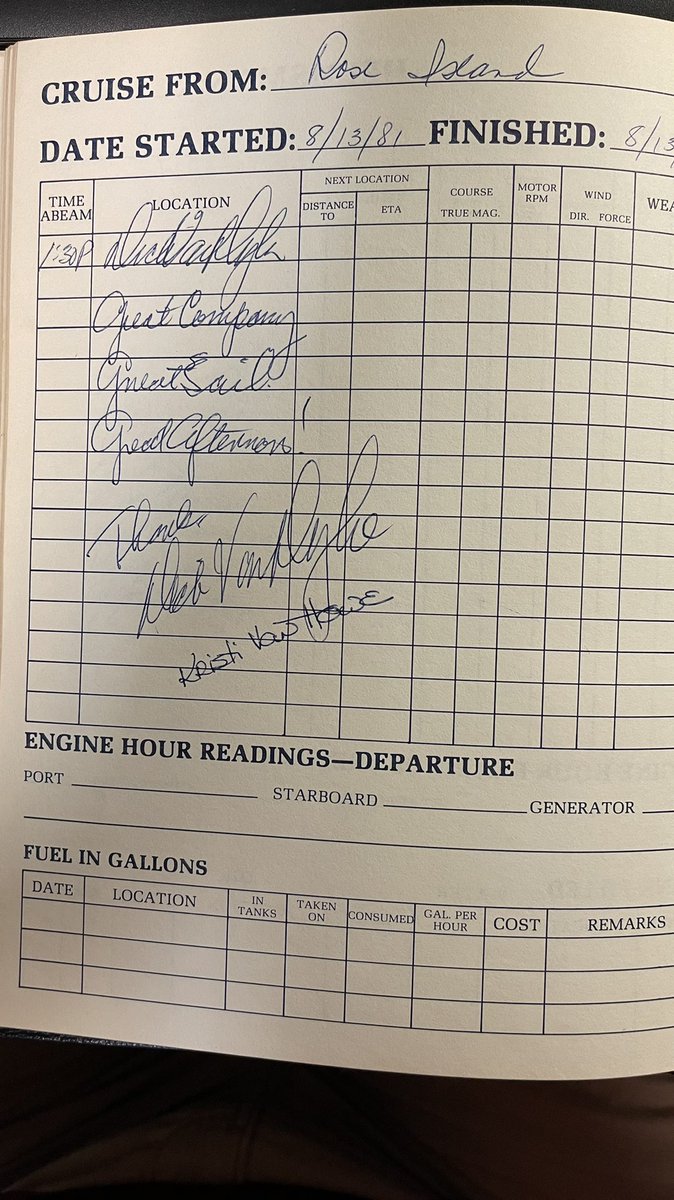 CRUISE FROM: Rose Island
DATE STARTED: 8/13/81 FINISHED: 8/13
TIME ABEAM
LOCATION
NEXT LOCATION
DISTANCE TO
ETA
COURSE
TRUE MAG.
MOTOR RPM
WIND
DIR. FORCE
WEA
1:30P
Great Company
Great Sail
Great Afternoon!
Thanks,
Van Dyke
Kristi
ENGINE HOUR READINGS—DEPARTURE
PORT STARBOARD GENERATOR
FUEL IN GALLONS
DATE
LOCATION
IN TANKS
TAKEN ON
CONSUMED
GAL. PER HOUR
COST
REMARKS